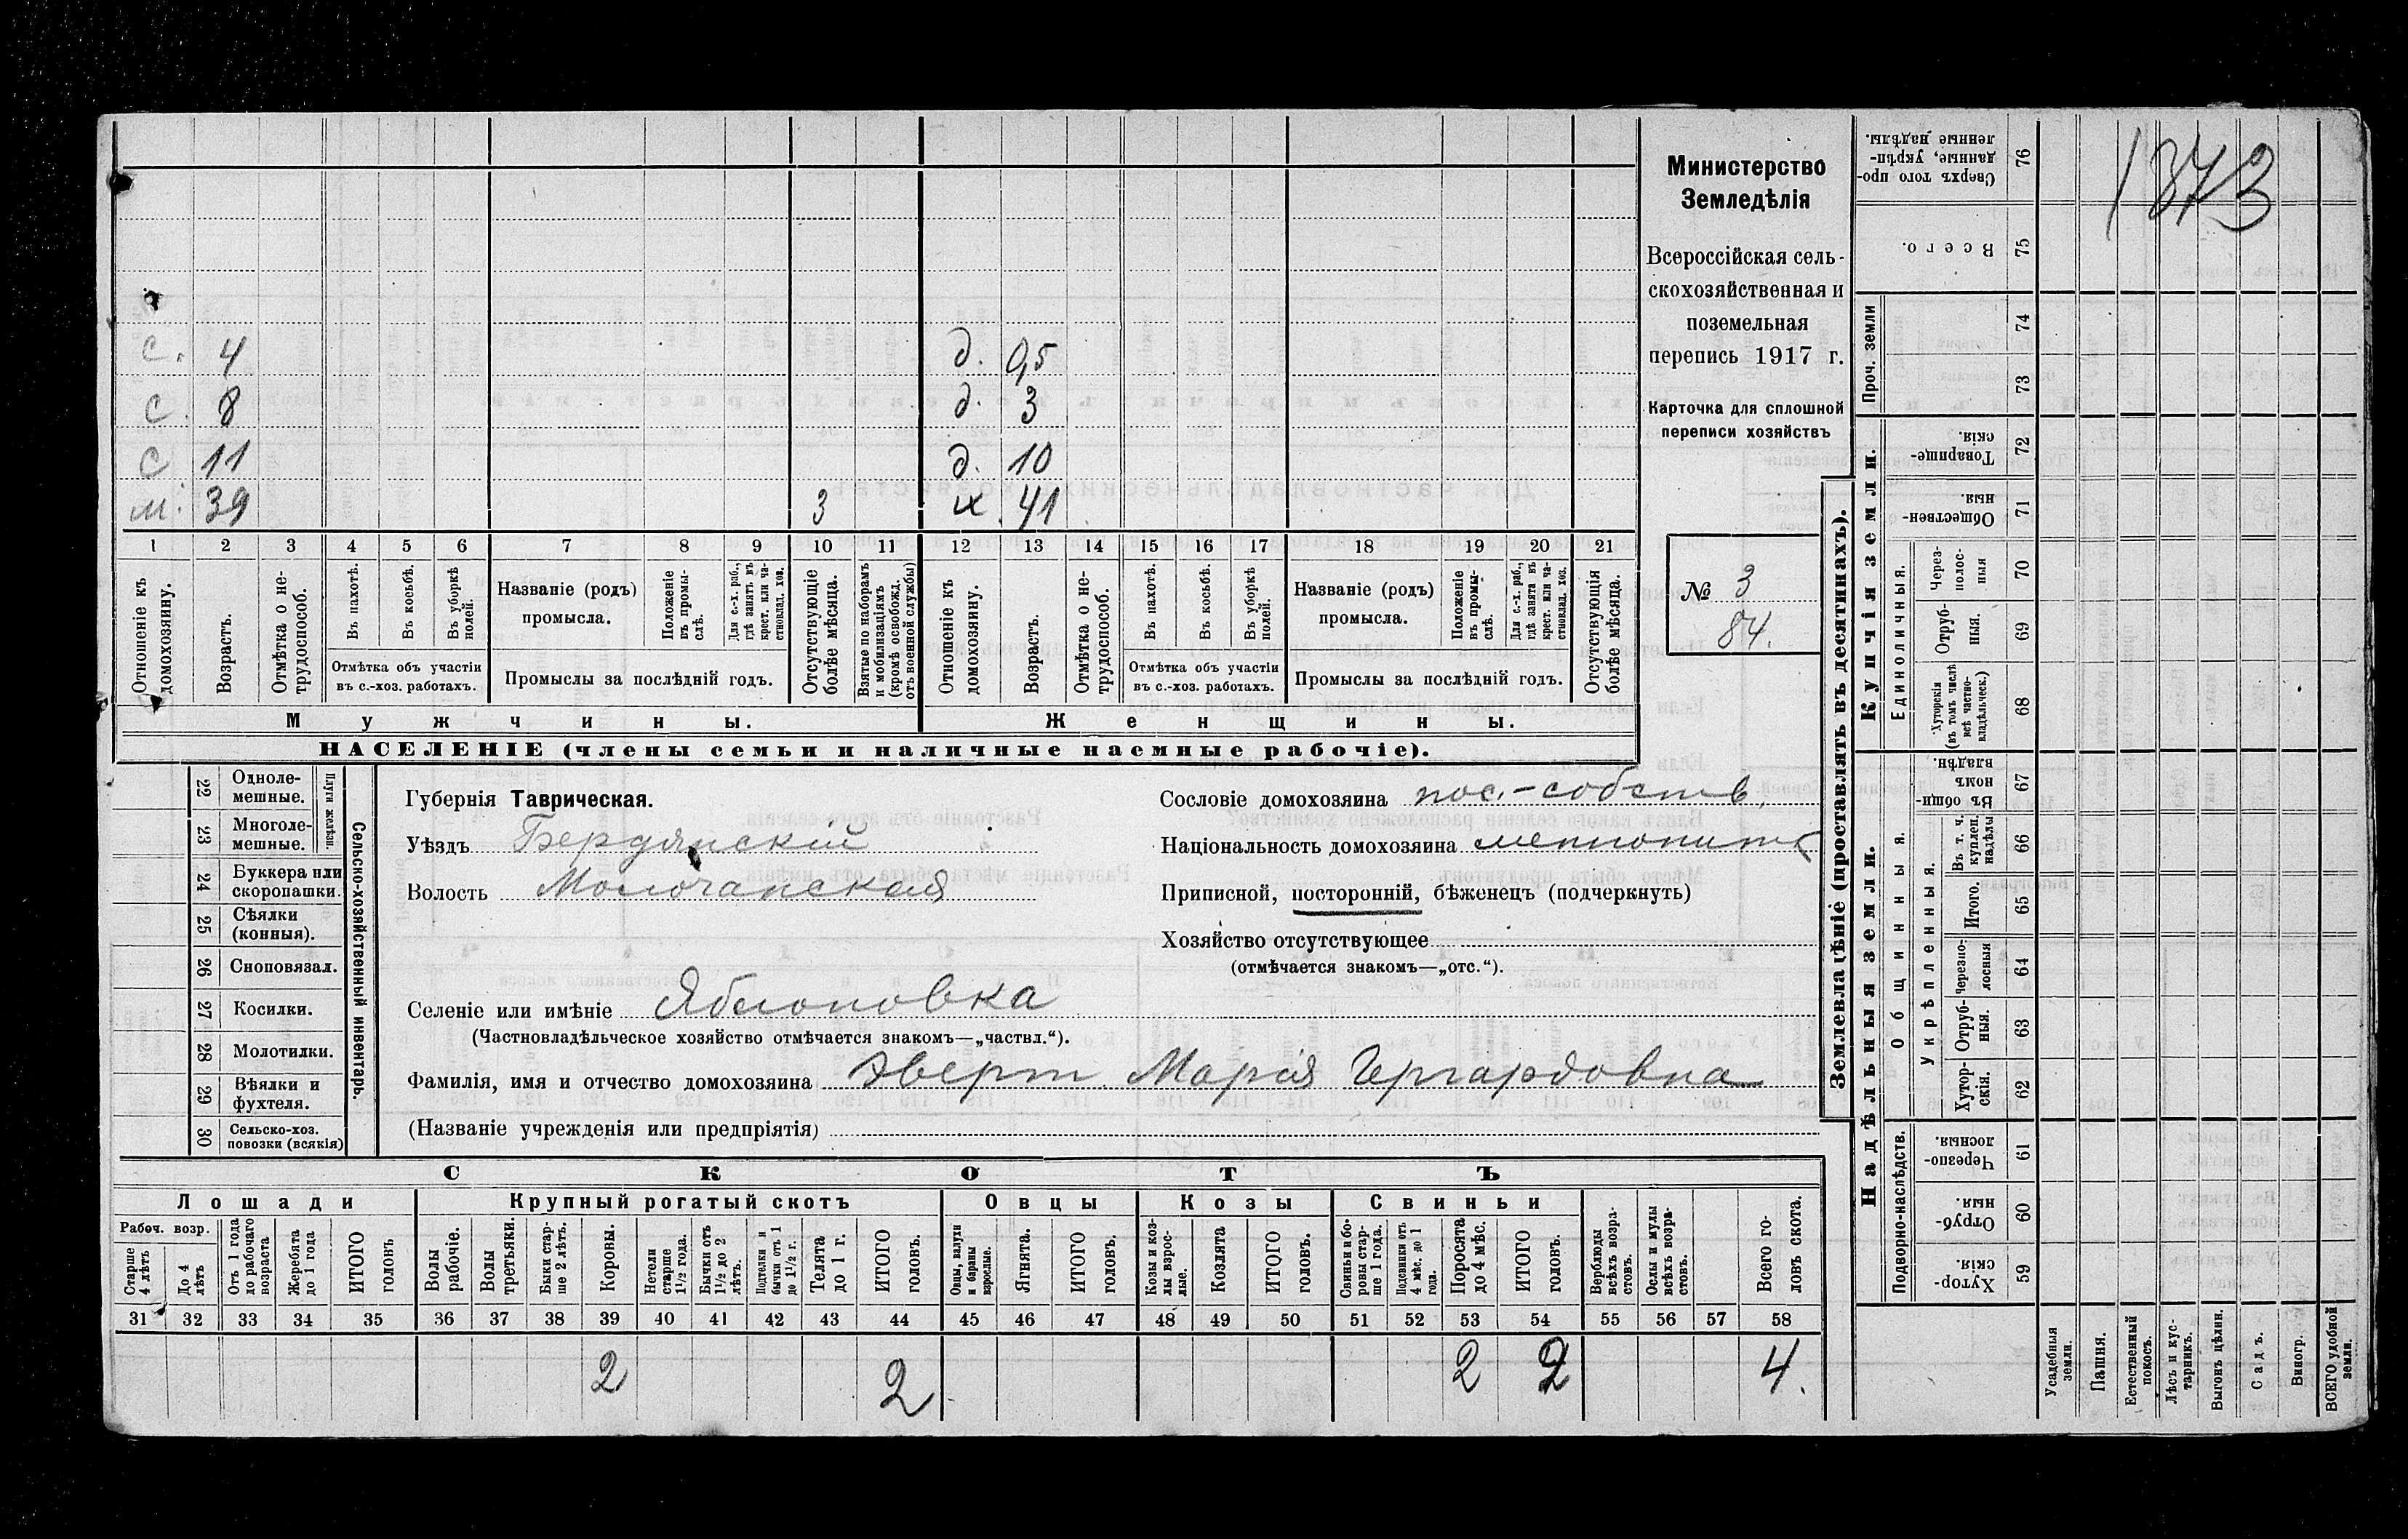 1873
Министерство
Земледѣлія
Всероссійская сель-
скохозяйственная и
поземельная
перепись 1917 г.
Карточка для сплошной
переписи хозяйствъ
№ 3
84.
с. 4 д. 0,5
с. 8 д. 3
с 11 д. 10
м. 39 3 х. 41
1 2 3 4 5 6 7 8 9 10 11 12 13 14 15 16 17 18 19 20 21
Отношеніе къ домохозяину.
Возрастъ.
Отмѣтка о не-трудоспособ.
Въ пахотѣ.
Въ косьбѣ.
Въ уборкѣ полей.
Отмѣтка объ участіи
въ с.-хоз. работахъ.
Названіе (родъ)
промысла.
Положеніе въ промы-слѣ.
Для с.-х. раб., гдѣ занятъ въ крест. или ча-стновлад. хоз.
Промыслы за послѣдній годъ.
Отсутствующіе болѣе мѣсяца.
Взятые по наборамъ и мобилизаціямъ (кромѣ освобожд. отъ военной службы)
Отношеніе къ домохозяину.
Возрастъ.
Отмѣтка о не-трудоспособ.
Въ пахотѣ.
Въ косьбѣ.
Въ уборкѣ полей.
Отмѣтка объ участіи
въ с.-хоз. работахъ.
Названіе (родъ)
промысла.
Положеніе въ промы-слѣ.
Для с.-х. раб., гдѣ занята въ крест. или ча-стновлад. хоз.
Промыслы за послѣдній годъ.
Отсутствующія болѣе мѣсяца.
Мужчины. Женщины.
НАСЕЛЕНІЕ (члены семьи и наличные наемные рабочіе).
22 Одноле-мешные.
23 Многоле-мешные.
Плуги желѣзн.
24 Буккера или скоропашки.
25 Сѣялки (конныя).
26 Сноповязал.
27 Косилки.
28 Молотилки.
29 Вѣялки и фухтеля.
30 Сельско-хоз. повозки (всякія)
Сельско-хозяйственный инвентарь.
Губернія Таврическая.
Уѣздъ Бердянскій
Волость Молочанская
Сословіе домохозяина пос.-собств.
Національность домохозяина меннонитъ
Приписной, посторонній, бѣженецъ (подчеркнуть)
Хозяйство отсутствующее
(отмѣчается знакомъ—„отс.“).
Селеніе или имѣніе Яблоновка
(Частновладѣльческое хозяйство отмѣчается знакомъ—„частвл.“).
Фамилія, имя и отчество домохозяина Эверт Марія Гергардовна
(Названіе учрежденія или предпріятія)
СКОТЪ
Лошади Крупный рогатый скотъ Овцы Козы Свиньи
Рабоч. возр.
Старше 4 лѣтъ
До 4 лѣтъ
Отъ 1 года до рабочаго возраста
Жеребята до 1 года
ИТОГО головъ
Волы рабочіе.
Волы третьяки.
Быки стар-ше 2 лѣтъ.
Коровы.
Нетели старше 1½ года.
Бычки отъ 1½ до 2 лѣтъ.
Подтелки и бычки отъ 1 до 1½ г.
Телята до 1 г.
ИТОГО головъ.
Овцы, валухи и бараны взрослые.
Ягнята.
ИТОГО головъ.
Козы и коз-лы взрос-лые.
Козлята
ИТОГО головъ.
Свиньи и бо-ровы стар-ше 1 года.
Подсвинки отъ 4 мѣс. до 1 года.
Поросята до 4 мѣс.
ИТОГО головъ.
Верблюды всѣхъ возра-стовъ.
Ослы и мулы всѣхъ возра-стовъ.
Всего го-ловъ скота.
31 32 33 34 35 36 37 38 39 40 41 42 43 44 45 46 47 48 49 50 51 52 53 54 55 56 57 58
2 2 2 2 4.
Землевладѣніе (проставлять въ десятинахъ).
Купчія земли.
Надѣльныя земли.
Сверхъ того про-данные, укрѣп-ленные надѣлы. 76
Всего. 75
Проч. земли 74 73
Товарище-скія. 72
Обществен-ныя. 71
Единоличныя.
Через-полос-ныя 70
Отруб-ныя. 69
Хуторскія (въ томъ числѣ всѣ частно-владѣльческ.) 68
Общинныя.
Въ общин-номъ владѣн. 67
Укрѣпленныя.
Въ т. ч. куплен. надѣлы 66
Итого. 65
Черезпо-лосныя 64
Отруб-ныя. 63
Хутор-скія. 62
Подворно-наслѣдств.
Черезпо-лосныя. 61
Отруб-ныя. 60
Хутор-скія. 59
Усадебныя земли.
Пашня.
Естественный покосъ.
Лѣсъ и кус-тарникъ.
Выгонъ цѣлин.
Садъ.
Виногр.
ВСЕГО удобной земли.